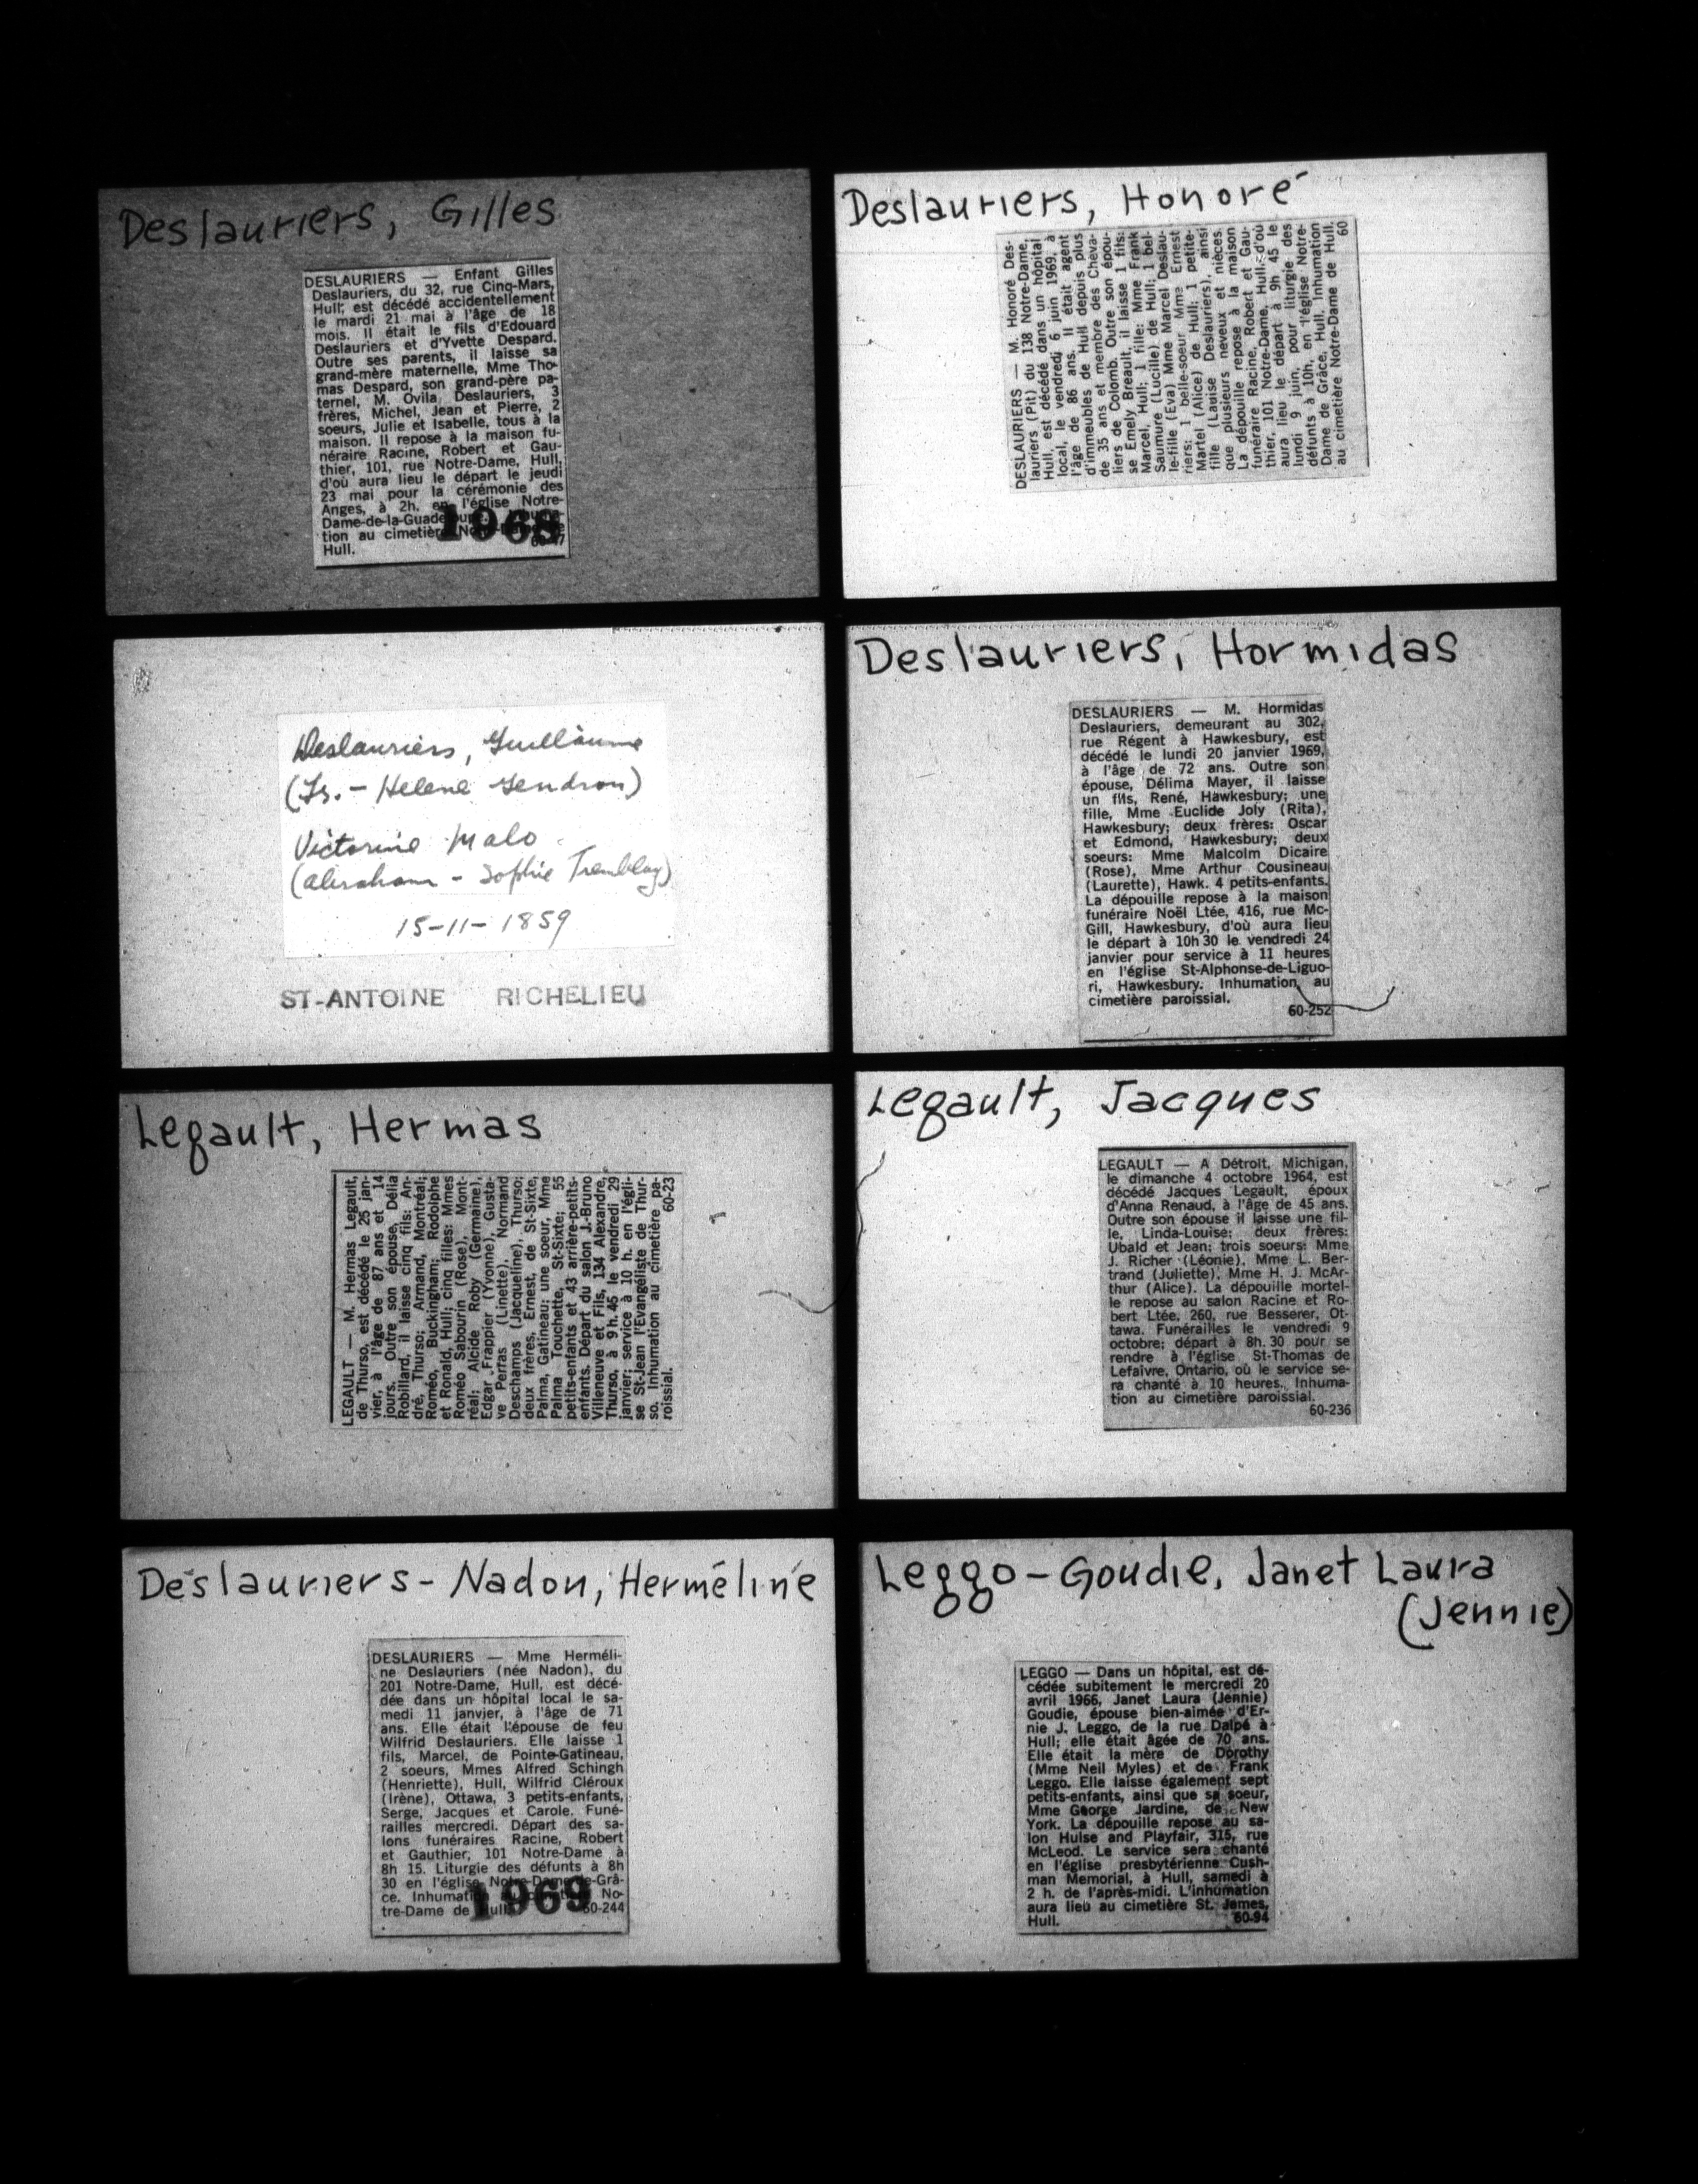 Deslauriers, Gilles
DESLAURIERS — Enfant Gilles
Deslauriers, du 32, rue Cinq-Mars,
Hull, est décédé accidentellement
le mardi 21 mai à l'âge de 18
mois. Il était le fils d'Edouard
Deslauriers et d'Yvette Despard.
Outre ses parents, il laisse sa
grand-mère maternelle, Mme Tho-
mas Despard, son grand-père pa-
ternel, M. Ovila Deslauriers, 3
frères, Michel, Jean et Pierre, 2
soeurs, Julie et Isabelle, tous à la
maison. Il repose à la maison fu-
néraire Racine, Robert et Gau-
thier, 101, rue Notre-Dame, Hull,
d'où aura lieu le départ le jeudi
23 mai pour la cérémonie des
Anges, à 2h. en l'église Notre-
Dame-de-la-Guadeloupe.
tion au cimetière
Hull.
1968
Deslauriers, Honoré
DESLAURIERS — M. Honoré Des-
lauriers (Pit) du 138 Notre-Dame,
Hull, est décédé dans un hôpital
local, le vendredi 6 juin 1969, à
l'âge de 86 ans. Il était agent
d'immeubles de Hull depuis plus
de 35 ans et membre des Cheva-
liers de Colomb. Outre son épou-
se Emely Breault, il laisse 1 fils:
Marcel, Hull; 1 fille: Mme Frank
Saumure (Lucille) de Hull; 1 bel-
le-fille (Eva) Mme Marcel Deslau-
riers; 1 belle-soeur Mme Ernest
Martel (Alice) de Hull; 1 petite-
fille (Lauise Deslauriers), ainsi
que plusieurs neveux et nièces.
La dépouille repose à la maison
funéraire Racine, Robert et Gau-
thier, 101 Notre-Dame, Hull, d'où
aura lieu le départ à 9h 45 le
lundi 9 juin, pour liturgie des
défunts à 10h, en l'église Notre-
Dame de Grâce, Hull. Inhumation
au cimetière Notre-Dame de Hull.
60
Deslauriers, Guillaume
(Fs. - Helene Gendron)
Victorine Malo
(Abraham - Sophie Tremblay)
15-11-1859
ST-ANTOINE RICHELIEU
Deslauriers, Hormidas
DESLAURIERS — M. Hormidas
Deslauriers, demeurant au 302,
rue Régent à Hawkesbury, est
décédé le lundi 20 janvier 1969,
à l'âge de 72 ans. Outre son
épouse, Délima Mayer, il laisse
un fils, René, Hawkesbury; une
fille, Mme Euclide Joly (Rita),
Hawkesbury; deux frères: Oscar
et Edmond, Hawkesbury; deux
soeurs: Mme Malcolm Dicaire
(Rose), Mme Arthur Cousineau
(Laurette), Hawk. 4 petits-enfants.
La dépouille repose à la maison
funéraire Noël Ltée, 416, rue Mc-
Gill, Hawkesbury, d'où aura lieu
le départ à 10h 30 le vendredi 24
janvier pour service à 11 heures
en l'église St-Alphonse-de-Liguo-
ri, Hawkesbury. Inhumation au
cimetière paroissial.
60-252
Legault, Hermas
LEGAULT — M. Hermas Legault,
de Thurso, est décédé le 25 jan-
vier, à l'âge de 87 ans et 14
jours. Outre son épouse, Délia
Robillard, il laisse cinq fils: An-
dré, Thurso; Armand, Montréal;
Roméo, Buckingham; Rodolphe
et Ronald, Hull; cinq filles: Mmes
Roméo Sabourin (Rose), Mont-
réal; Alcide Roby (Germaine),
Edgar Frappier (Yvonne), Gusta-
ve Perras (Linette), Normand
Deschamps (Jacqueline), Thurso;
deux frères, Ernest, de St-Sixte,
Palma, Gatineau; une soeur, Mme
Palma Touchette, St-Sixte; 55
petits-enfants et 43 arrière-petits-
enfants. Départ du salon J.-Bruno
Villeneuve et Fils, 134 Alexandre,
Thurso, à 9 h. 45 le vendredi 29
janvier; service à 10 h. en l'égli-
se St-Jean l'Evangéliste de Thur-
so. Inhumation au cimetière pa-
roissial.
60-23
Legault, Jacques
LEGAULT — A Détroit, Michigan,
le dimanche 4 octobre 1964, est
décédé Jacques Legault, époux
d'Anna Renaud, à l'âge de 45 ans.
Outre son épouse il laisse une fil-
le, Linda-Louise; deux frères:
Ubald et Jean; trois soeurs: Mme
J. Richer (Léonie), Mme L. Ber-
trand (Juliette), Mme H. J. McAr-
thur (Alice). La dépouille mortel-
le repose au salon Racine et Ro-
bert Ltée, 260, rue Besserer, Ot-
tawa. Funérailles le vendredi 9
octobre; départ à 8h. 30 pour se
rendre à l'église St-Thomas de
Lefaivre, Ontario, où le service se-
ra chanté à 10 heures. Inhuma-
tion au cimetière paroissial.
60-236
Deslauriers-Nadon, Herméline
DESLAURIERS — Mme Herméli-
ne Deslauriers (née Nadon), du
201 Notre-Dame, Hull, est décé-
dée dans un hôpital local le sa-
medi 11 janvier, à l'âge de 71
ans. Elle était l'épouse de feu
Wilfrid Deslauriers. Elle laisse 1
fils, Marcel, de Pointe-Gatineau,
2 soeurs, Mmes Alfred Schingh
(Henriette), Hull, Wilfrid Cléroux
(Irène), Ottawa, 3 petits-enfants,
Serge, Jacques et Carole. Funé-
railles mercredi. Départ des sa-
lons funéraires Racine, Robert
et Gauthier, 101 Notre-Dame à
8h 15. Liturgie des défunts à 8h
30 en l'église Notre-Dame-de-Grâ-
ce. Inhumation au cimetière No-
tre-Dame de Hull.
60-244
1969
Leggo-Goudie, Janet Laura
(Jennie)
LEGGO — Dans un hôpital, est dé-
cédée subitement le mercredi 20
avril 1966, Janet Laura (Jennie)
Goudie, épouse bien-aimée d'Er-
nie J. Leggo, de la rue Dalpé à
Hull; elle était âgée de 70 ans.
Elle était la mère de Dorothy
(Mme Neil Myles) et de Frank
Leggo. Elle laisse également sept
petits-enfants, ainsi que sa soeur,
Mme George Jardine, de New
York. La dépouille repose au sa-
lon Hulse and Playfair, 315, rue
McLeod. Le service sera chanté
en l'église presbytérienne Cush-
man Memorial, à Hull, samedi à
2 h. de l'après-midi. L'inhumation
aura lieu au cimetière St. James,
Hull.
60-94